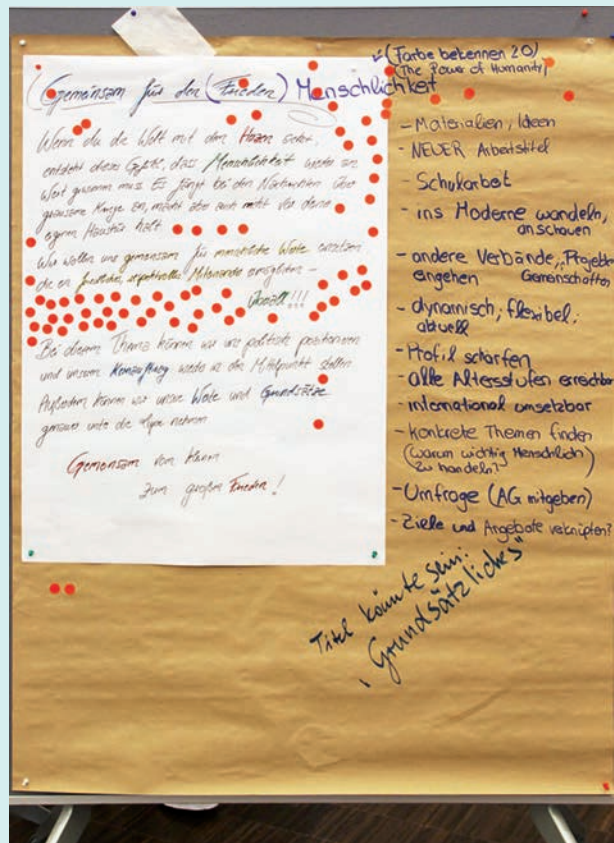 (Gemeinsam für den (Frieden) Menschlichkeit
(Farbe bekennen 2.0)
(The Power of Humanity)
Wenn du die Welt mit dem Herzen siehst,
entsteht dieses Gefühl, dass Menschlichkeit wieder an
Wert gewinnen muss. Es fängt bei den Nachrichten über
grausame Kriege an, macht aber auch nicht vor deiner
eigenen Haustür halt.
Wir wollen uns gemeinsam für menschliche Werte einsetzen,
die ein friedliches, respektvolles Miteinander ermöglichen –
Überall!!!
Bei diesem Thema können wir uns politisch positionieren
und unseren Kernauftrag wieder in den Mittelpunkt stellen
Außerdem können wir unsere Werte und Grundsätze
genauer unter die Lupe nehmen
Gemeinsam vom kleinen
zum großen Frieden!
- Materialien, Ideen
- NEUER Arbeitstitel
- Schularbeit
- ins Moderne wandeln,
anschauen
- andere Verbände, Projekte
eingehen Gemeinschaften
- dynamisch, flexibel,
aktuell
- Profil schärfen
- alle Altersstufen erreichbar
- international umsetzbar
- konkrete Themen finden
(warum wichtig Menschlich
zu handeln?)
- Umfrage (AG mitgeben)
- Ziele und Angebote verknüpfen?
Titel könnte sein:
"Grundsätzliches"